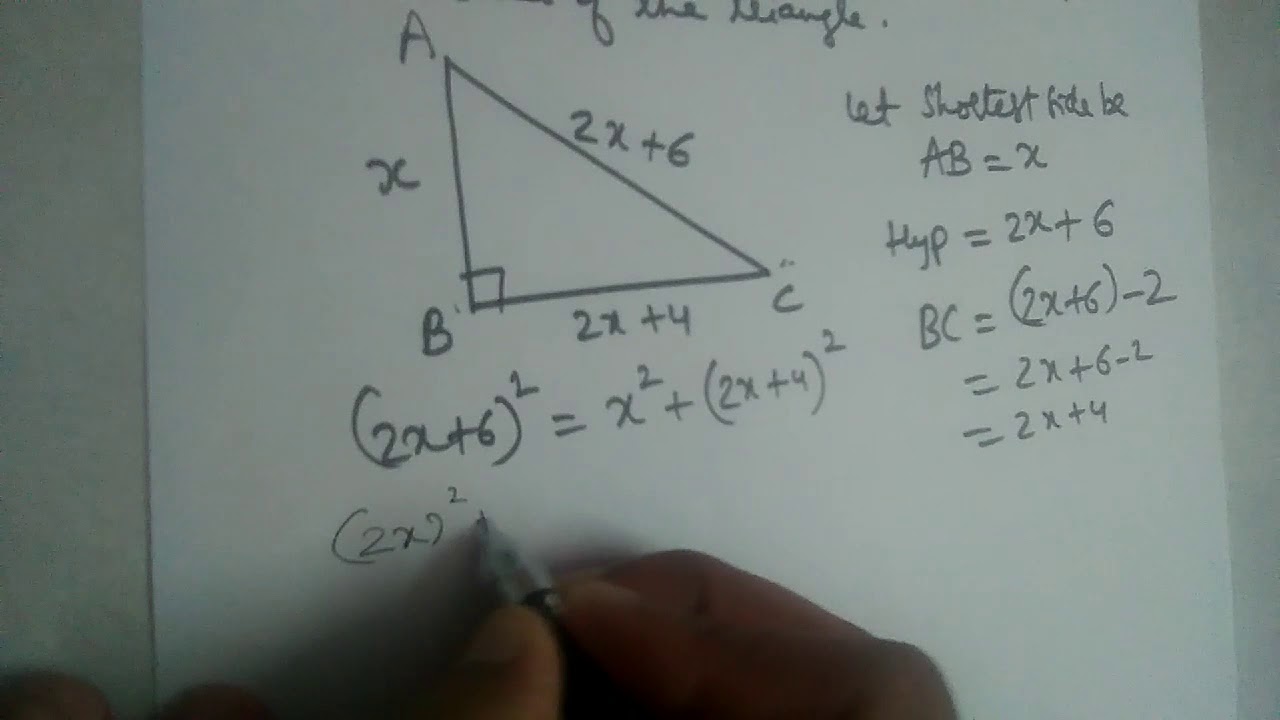 of the triangle.
A
2x+6
x
B
C
2x+4
Let Shortest side be
AB = x
Hyp = 2x+6
BC = (2x+6)-2
= 2x+6-2
= 2x+4
(2x+6)² = x² + (2x+4)²
(2x)²